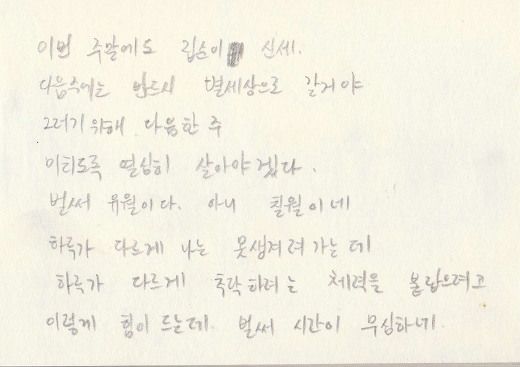 이번 주말에도 집순이 신세.
다음주에는 반드시 별세상으로 갈거야
그러기 위해 다음 한 주
미치도록 열심히 살아야겠다.
벌써 유월이다. 아니 칠월이네
하루가 다르게 나는 못생겨려가는데
하루가 다르게 축락하려는 체력을 붙잡으려고
이렇게 힘이 드는데. 벌써 시간이 무심하네.